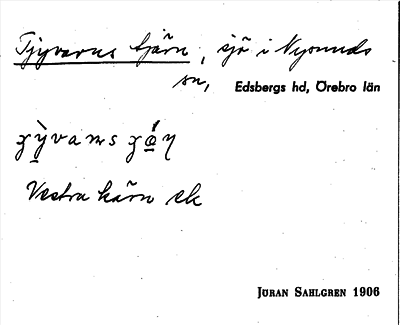 Tjyvarns tjärn, sjö i Nysunds
sn, Edsbergs hd, Örebro län
Vestra kärn ek
JÖRAN SAHLGREN 1906